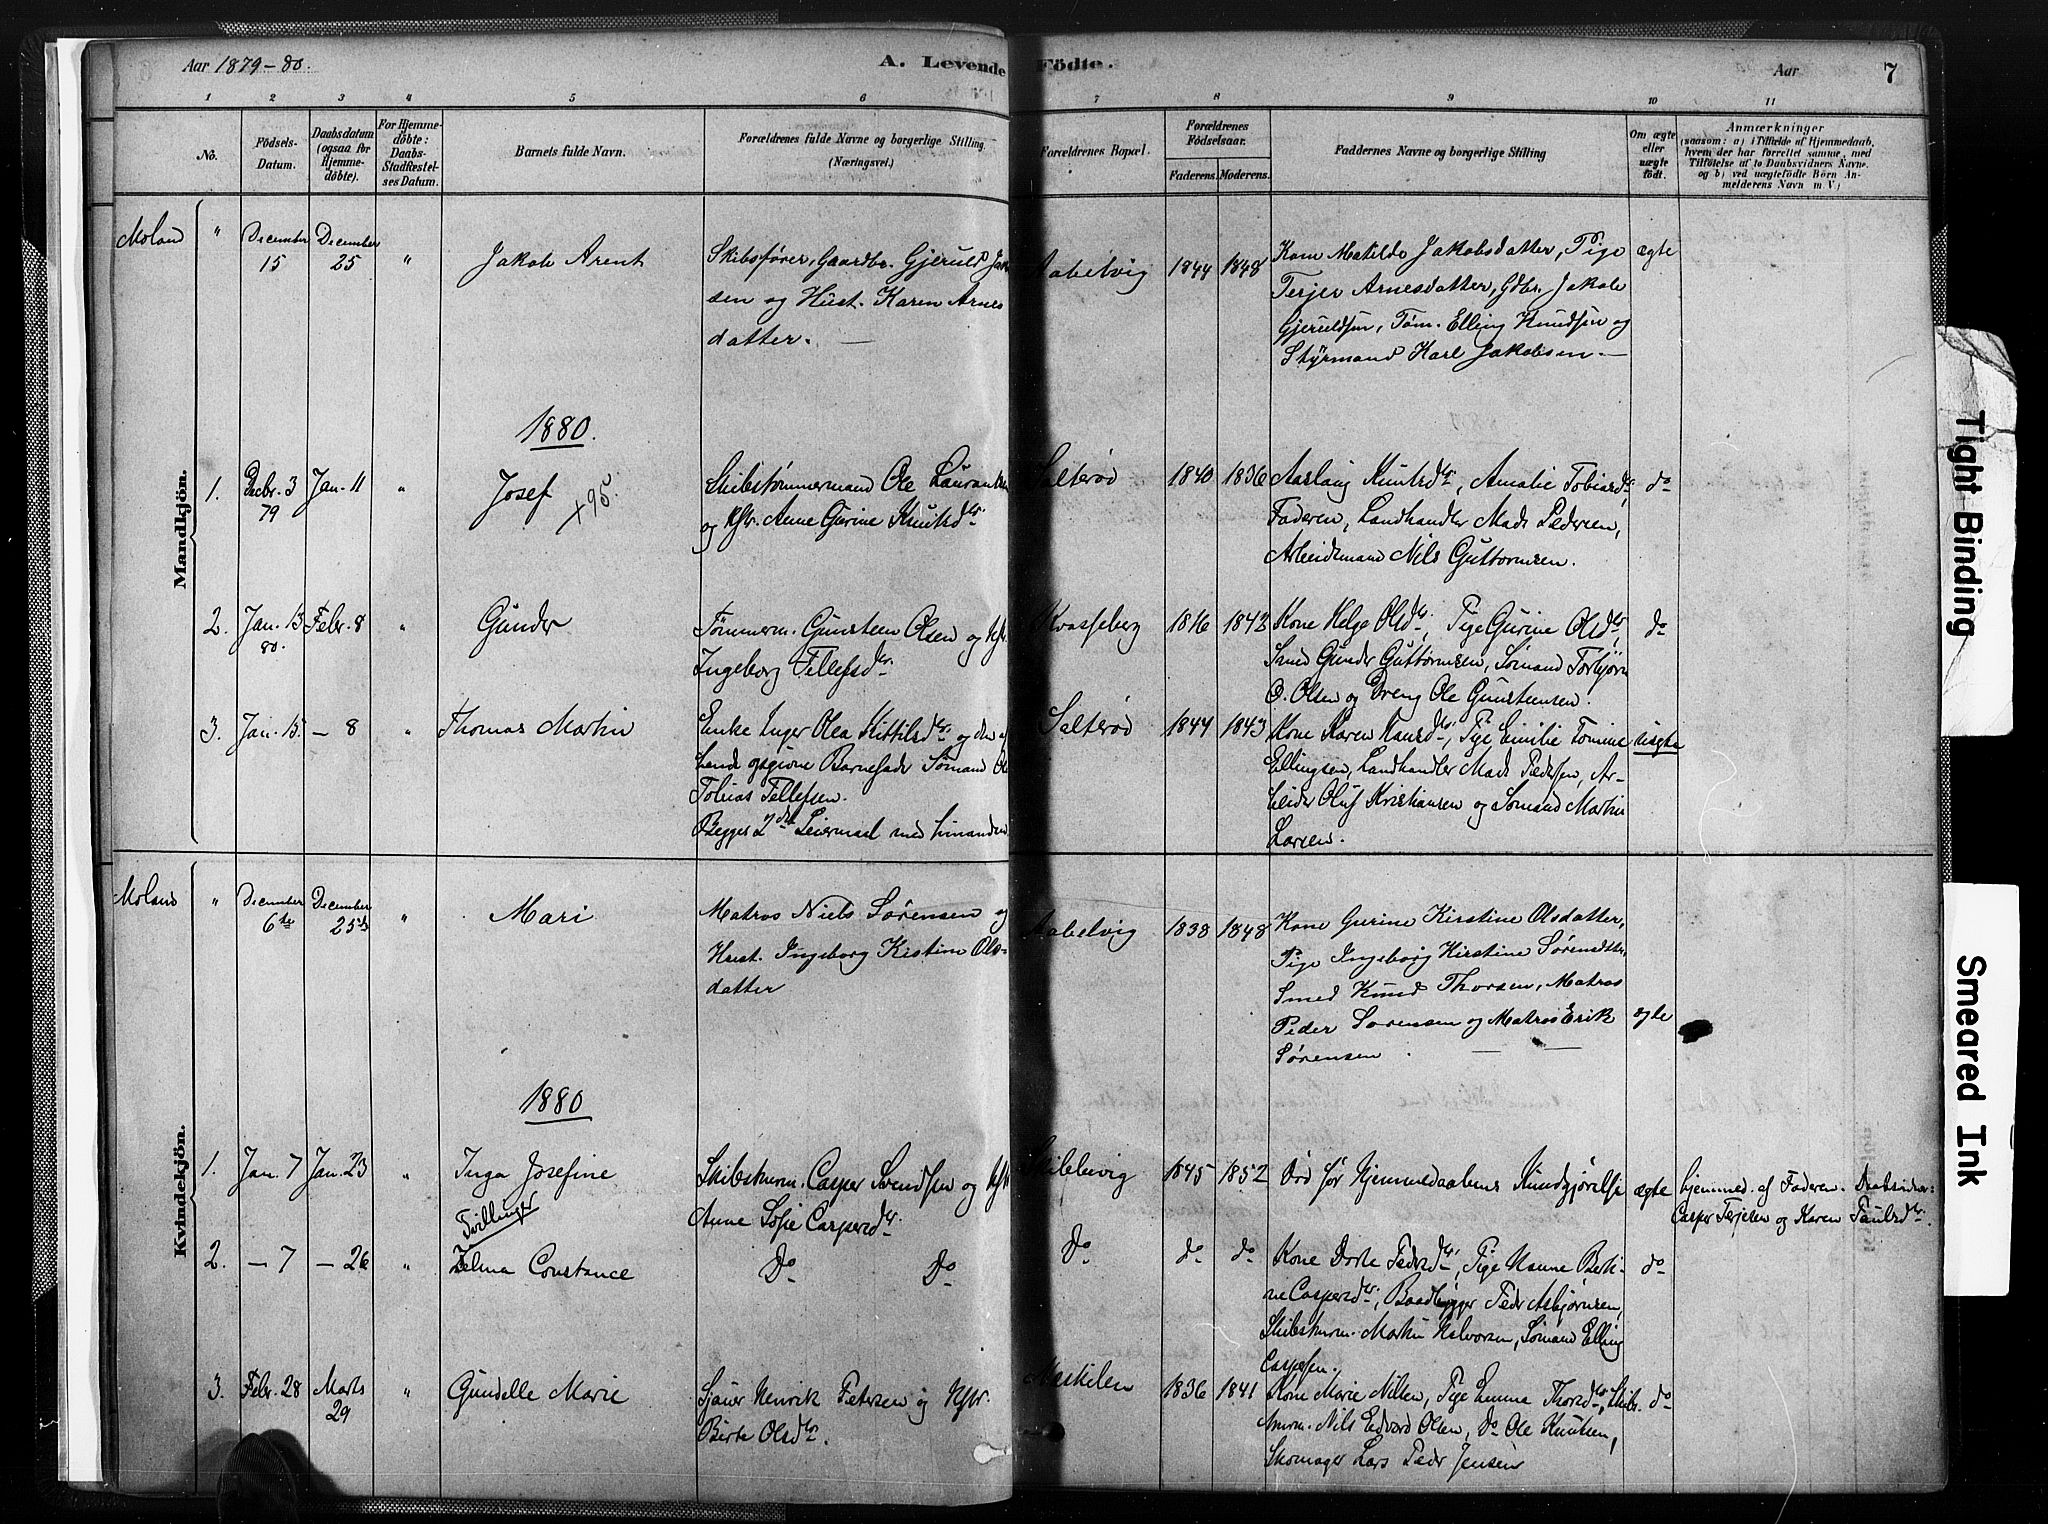 Aar 1879-80.
A. Levende Födte.
Aar
7
1 2 3 4 5 6 7 8 9 10 11
No.
Födsels-Datum.
Daabsdatum (ogsaa for Hjemmedöbte).
For Hjemmedöbte: Daabs-Stadfæstelses Datum.
Barnets fulde Navn.
Forældrenes fulde Navne og borgerlige Stilling. (Næringsvei.)
Forældrenes Bopæl.
Forældrenes Födselsaar.
Faderens. Moderens.
Faddernes Navne og borgerlige Stilling
Om ægte eller uægte födt.
Anmærkninger
(saasom: a) i Tilfælde af Hjemmedaab, hvem der har forrettet samme, med Tilföielse af to Daabsvidners Navne. og b) ved uægtefödte Börn Anmelderens Navn m. V.)
Mandkjön.
Moland " December 15 December 25 " Jakob Arent
Skibsfører, Gaardbr. Gjeruld Jak
sen og Hust. Karen Arnes
datter. —
Aabelvig 1844 1848
Kone Matilde Jakobsdatter, Pige
Terjer Arnesdatter, Gdbr. Jakob
Gjeruldsen, Tøm. Elling Knudsen og
Styrmand Karl Jakobsen. —
ægte
1880.
1. Decbr. 3 79 Jan. 11 " Josef +95.
Skibstømmermand Ole Laurantsen
og Hstr. Anne Gurine Knutsdtr.
Salterød 1840 1836
Aaslaug Knutsdtr, Amalie Tobiasdtr,
Faderen, Landhandler Mads Pedersen,
Arbeidsmand Nils Guttormsen.
do
2. Jan. 13 80. Febr. 8 " Gunder
Tømmerm. Gunsteen Olsen og Hstr.
Ingeborg Tellefsdtr.
Kvasseberg 1816 1842
Kone Helge Olsdtr, Pige Gurine Olsdtr,
Smed Gunder Guttormsen, Sømand Torbjørn
O. Olsen og Dreng Ole Gunsteensen.
do
3. Jan. 15. — 8 " Thomas Martin
Enke Inger Olea Kittilsdtr. og den af
hende opgivne Barnefader Sømand Ole
Tobias Tellefsen.
Begges 2det Leiermaal med hinanden
Salterød 1844 1843
Kone Karen Hansdtr, Pige Emilie Tomine
Ellingsen, Landhandler Mads Pedersen, Ar-
beider Oluf Kristiansen og Sømand Martin
Larsen.
uægte
Kvindekjön.
Moland " December 6te December 25de " Mari
Matros Niels Sørensen og
Hust. Ingeborg Kistine Ols-
datter
Aabelvig 1838 1848
Kone Gurine Kirstine Olsdatter,
Pige Ingeborg Kirstine Sørensdtter,
Smed Knud Thorsen, Matros
Peder Sørensen og Matros Erik
Sørensen. —
ægte
1880
1. Jan. 7 Jan. 23 " Inga Josefine
Tvillinger
Skibstmrm. Casper Svendsen og Hstr.
Anne Sofie Caspersdtr.
1845 1852
Død før Hjemmedaabens Kundgjørelse
ægte
hjemmed. af Faderen. Daabsvidner:
Casper Terjesen og Karen Paulsdtr.
2. — 7 — 26 " Zelma Constance
Do Do
Do do do
Kone Dorte Pedersdtr, Pige Hanne Beth-
ine Caspersdtr, Baadbygger Peder Asbjørnsen,
Skibstmrm. Martin Halvorsen, Sømand Elling
Caspersen.
do
3. Febr. 28 Marts 29 " Gundelle Marie
Sjauer Henrik Petersen og Hstr.
Berte Olsdtr.
1836 1841
Kone Marie Nilsen, Pige Emma Thorsdtr, Skibs-
tmrm. Nils Edvard Olsen, Do Ole Knutsen,
Skomager Lars Peder Jensen
do
Tight Binding
Smeared Ink